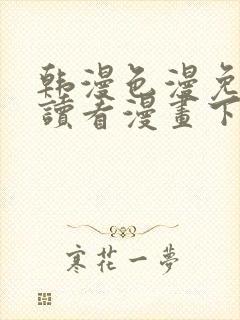 韩漫色漫免
讀看漫畫下
寒花一夢